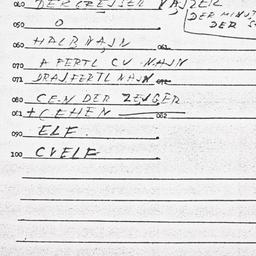 040 DER GRESSER VAJZER
DER MINUT
DER S
050 O
060 HALB NAJN 061
070 A FERTL CU NAJN
071 DRAJFERTL NAJN 072
080 CEN DER ZEJGER
081 + CEHEN 082
090 ELF.
100 CVELF